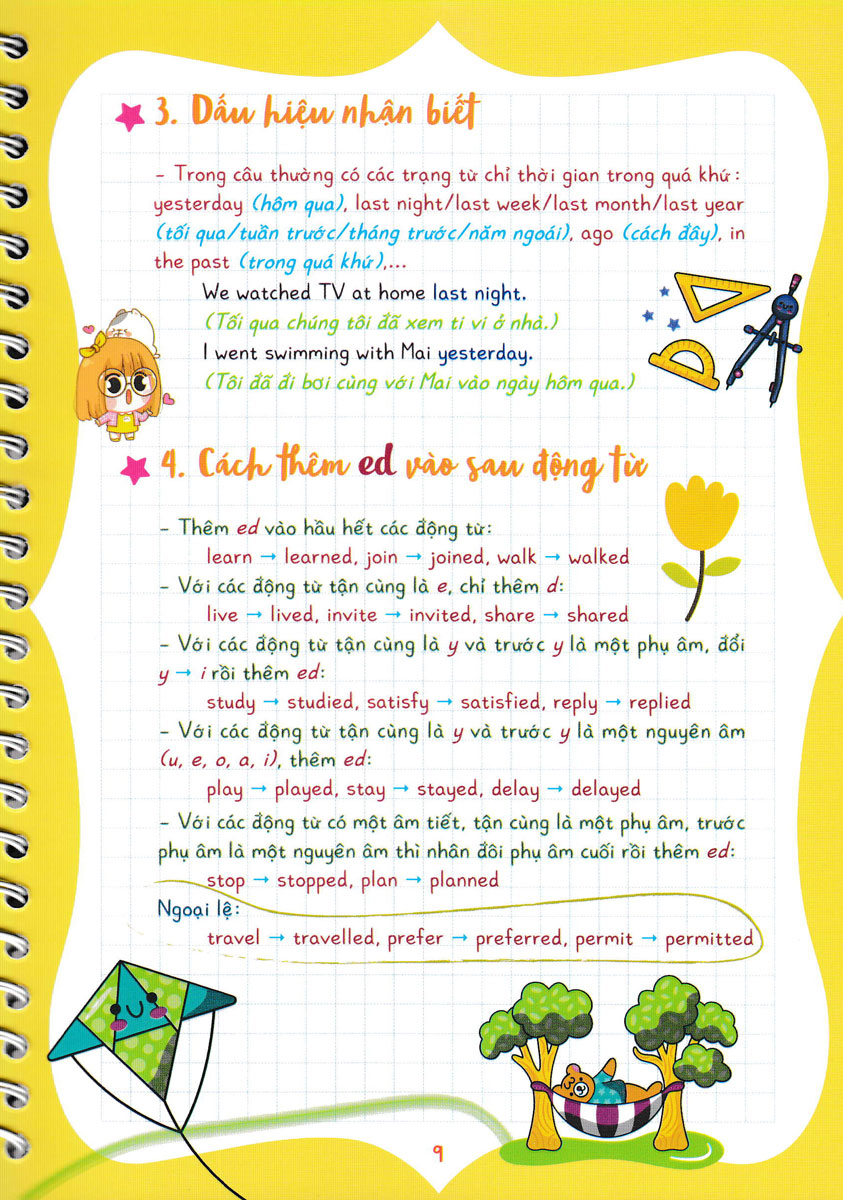 3. Dấu hiệu nhận biết
– Trong câu thường có các trạng từ chỉ thời gian trong quá khứ:
yesterday (hôm qua), last night/last week/last month/last year
(tối qua/tuần trước/tháng trước/năm ngoái), ago (cách đây), in
the past (trong quá khứ),...
We watched TV at home last night.
(Tối qua chúng tôi đã xem ti vi ở nhà.)
I went swimming with Mai yesterday.
(Tôi đã đi bơi cùng với Mai vào ngày hôm qua.)
4. Cách thêm ed vào sau động từ
– Thêm ed vào hầu hết các động từ:
learn → learned, join → joined, walk → walked
– Với các động từ tận cùng là e, chỉ thêm d:
live → lived, invite → invited, share → shared
– Với các động từ tận cùng là y và trước y là một phụ âm, đổi
y → i rồi thêm ed:
study → studied, satisfy → satisfied, reply → replied
– Với các động từ tận cùng là y và trước y là một nguyên âm
(u, e, o, a, i), thêm ed:
play → played, stay → stayed, delay → delayed
– Với các động từ có một âm tiết, tận cùng là một phụ âm, trước
phụ âm là một nguyên âm thì nhân đôi phụ âm cuối rồi thêm ed:
stop → stopped, plan → planned
Ngoại lệ:
travel → travelled, prefer → preferred, permit → permitted
9